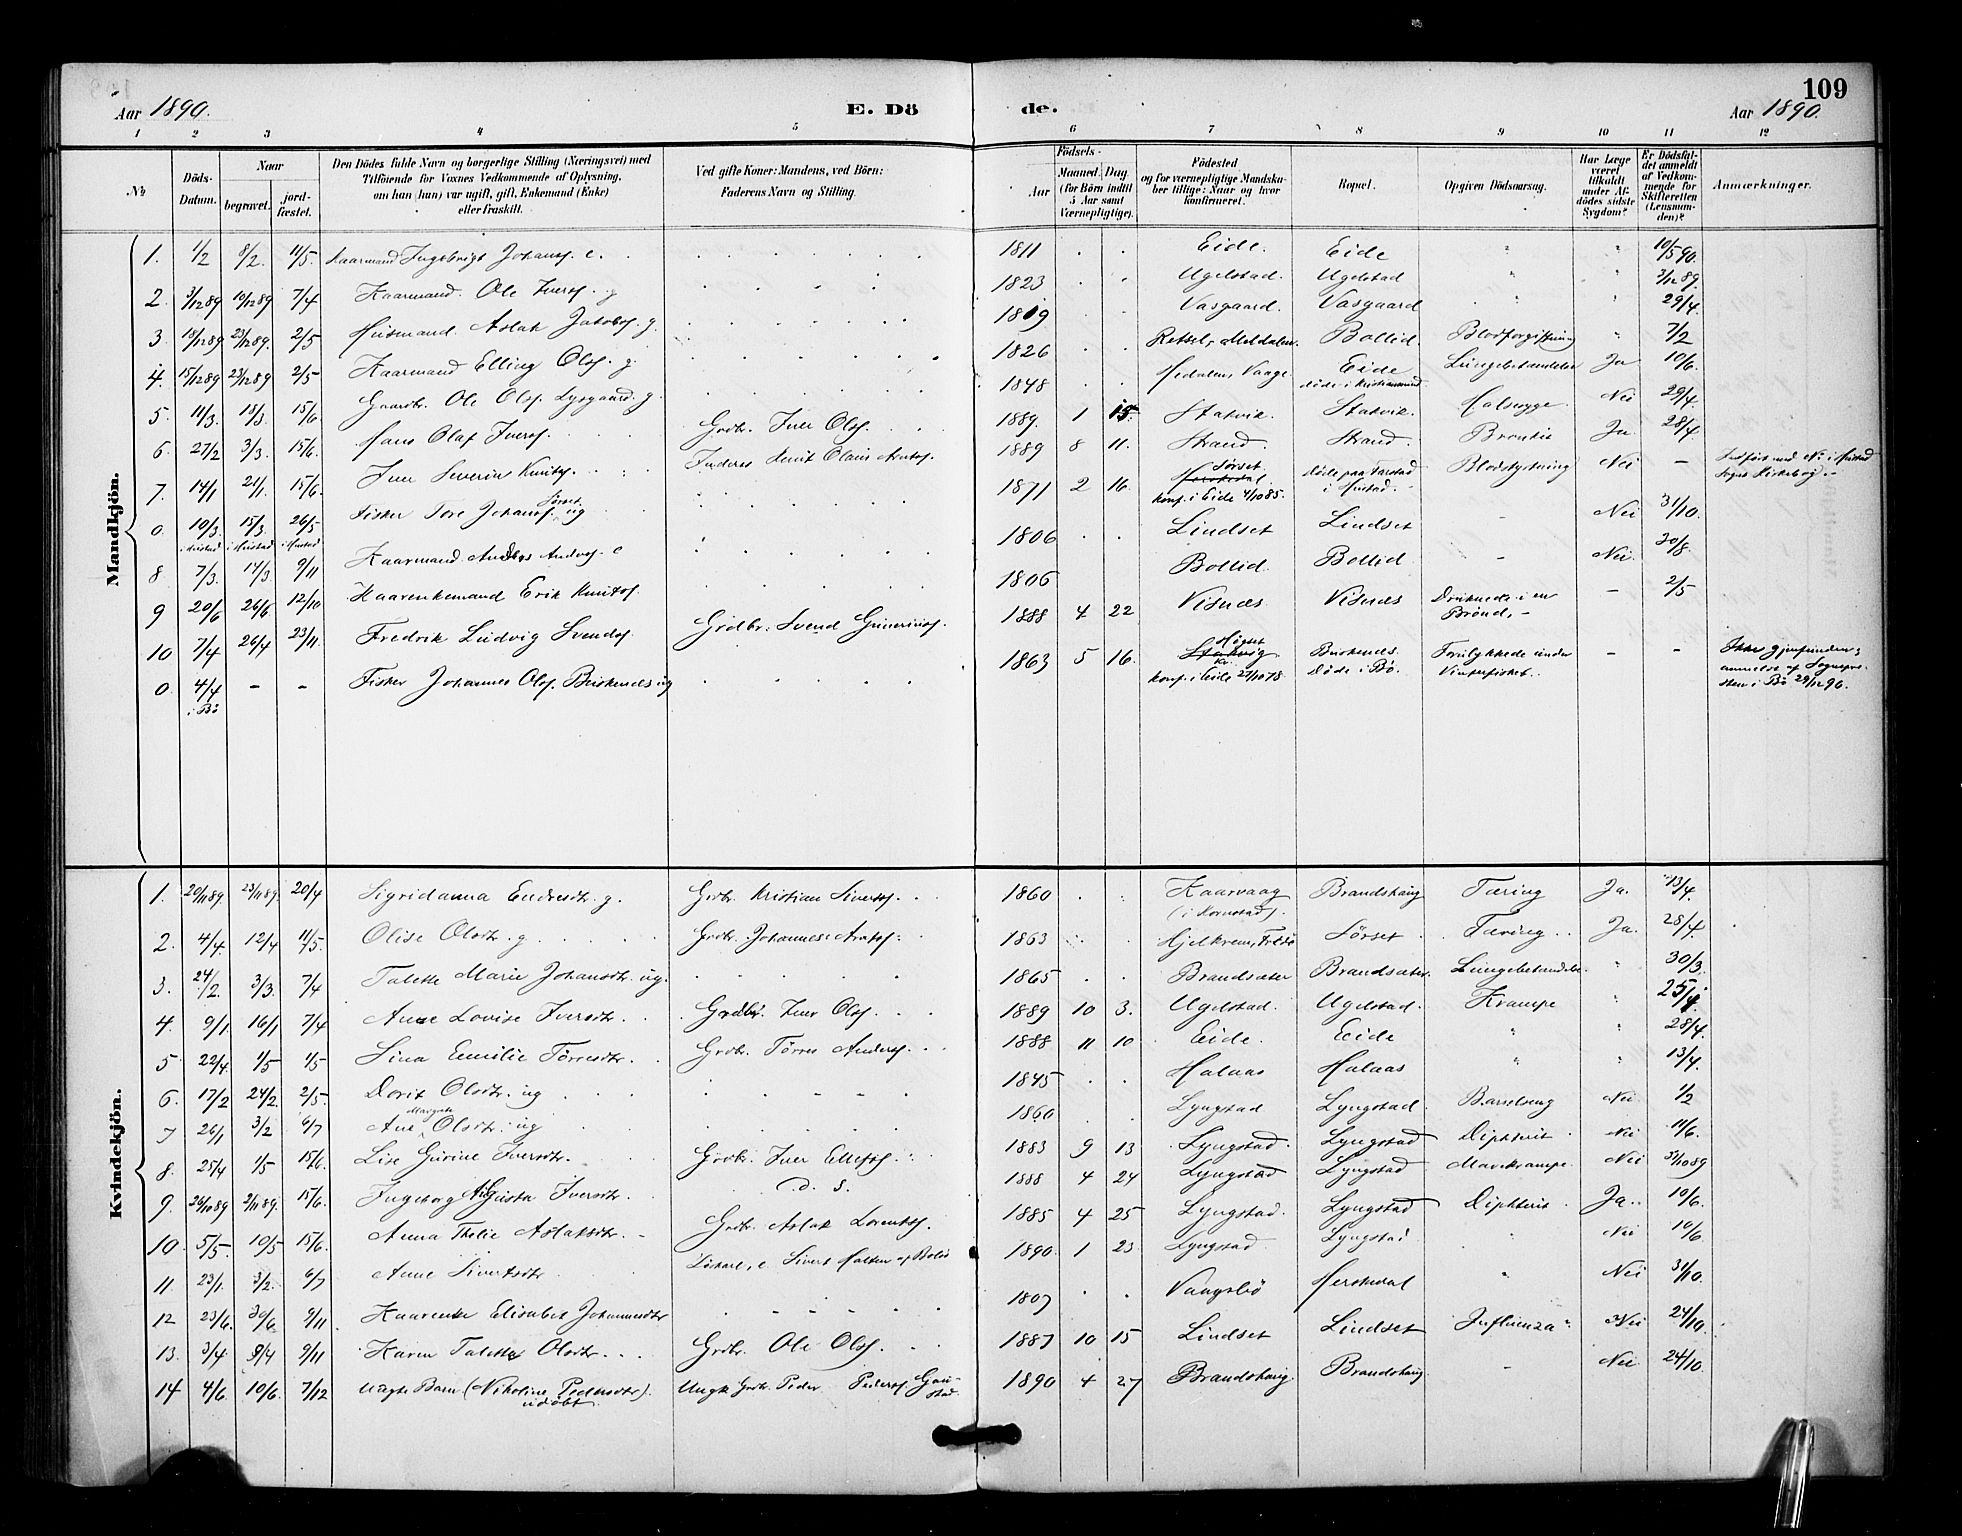 109
Aar 1890. E. Dö de. Aar 1890.
1 2 3 4 5 6 7 8 9 10 11 12
№ Döds-Datum. Naar begravet. jordfæstet. Den Dödes fulde Navn og borgerlige Stilling (Næringsvei) med Tilföiende for Voxnes Vedkommende af Oplysning, om han (hun) var ugift, gift, Enkemand (Enke) eller fraskilt. Ved gifte Koner: Mandens, ved Börn: Faderens Navn og Stilling. Födsels- Aar Maaned. Dag. (for Börn indtil 5 Aar samt Værnepligtige). Födested og for værnepligtige Mandskaber tillige: Naar og hvor konfirmeret. Bopæl. Opgiven Dödsaarsag. Har Læge været tilkaldt under Afdödes sidste Sygdom? Er Dödsfaldet anmeldt af Vedkommende for Skifteretten (Lensmanden)? Anmærkninger.
Mandkjön.
1. 1/2 8/2. 11/5. Kaarmand Ingebrigt Johans. e. 1811 Eide. Eide " 10/5 90.
2 3/12 89 10/12 89 7/4 Kaarmand. Ole Ivers. g 1823 Ugelstad. Ugelstad " 3/12 89.
3. 18/12 89 23/12 89. 2/5 Husmand. Aslak Jakobs. g. 1819 Vasgaard. Vasgaard " 29/4.
4. 15/12 89 23/12 89 2/5 Kaarmand Elling Ols. g. 1826 Retsel, Meldalen. Bollid. Blodforgiftning " 7/2
5. 11/3. 18/3. 15/6 Gaardbr. Ole Ols. Lysgaard. g. 1848 Hedalen, Vaage. Eide döde i Kristiansund Lungebetændelse Ja 10/6.
6. 27/2 3/3. 15/6. Hans Olaf Ivers. Grdbr. Iver Ols. 1889. 1 15. Stakvik. Stakvik. Halssyge. Nei 29/4.
7. 14/1 21/1. 15/6 Iver Severin Knuts. Inderst Knut Olaus Arnts. 1889 8 11. Strand. Strand. Bronkit Ja. 28/4
0. 10/3. 15/3. 26/5 i Hustad i Hustad i Hustad Fisker Tore Johans. Sørset ug 1871 2 16. Sørset konf. i Eide 4/10 85. döde paa Harstad i Hustad. Blodstyrtning Nei –
8 7/3. 14/3. 9/11 Kaarmand Anders Anders. e 1806 Lindset Lindset – Nei 31/10.
9 20/6 26/6 12/10 Kaarenkemand Erik Knuts. 1806 Bollid. Bollid. – Nei. 20/8.
10 7/4 26/4 23/11. Fredrik Ludvig Svends. Grdbr. Svend Gunerius. 1888 4 22 Visnæs Visnæs Druknede i en Brønd. – – 2/5
0. 4/4 i Bö – – Fisker Johannes Ols. Buskenes ug 1863 5 16. Høgset konf. i Eide 27/10 78. Buskenes. Döde i Bö. Forulykkede under Vinterfisket. – – Ikke gjenfunden; anmeldt af Sognepresten i Bö 29/12 96.
Kvindekjön.
1. 20/11 89 23/11 89. 20/4 Sigridanna Endresdtr. g. Grdbr. Kristian Siverts. 1860 Kaarvaag (i Kornstad). Brandshaug Tæring Ja. 13/4.
2. 4/4. 12/4 11/5. Olise Olsdtr. g Grdbr. Johannes Arnts. 1863 Hjelkrem, Fredø Sörset Tæring. Ja. 28/4.
3. 24/2. 3/3. 7/4 Talette Marie Johansdtr. ug. 1865 Brandsæter Brandsæter. Lungebetændelse. " 30/3.
4. 9/1. 16/1 7/4 Anne Lovise Iversdtr. Grdbr. Iver Ols. 1889 10 3. Ugelstad. Ugelstad. Krampe " 25/4.
5 22/4. 1/5 1/5 Lina Emilie Törresdtr. Grdbr. Törres Anders. 1888 11 10 Eide. Eide " " 28/4.
6. 17/2 24/2. 2/5. Dorit Olsdtr. ug 1845 Halaas Halaas " " 13/4.
7 26/1 3/2 6/7 Ane Margrete Olsdtr. ug 1860 Lyngstad Lyngstad. Barselseng Nei 1/2
8. 25/4 1/5 15/6. Lise Gurine Iversdtr. Grdbr. Iver Ellefs. 1883 9 13 Lyngstad. Lyngstad Diphterit Nei 11/6.
9. 26/10 89 2/11 89. 15/6. Ingeborg Augusta Iversdtr. d. s. 1888 4 24 Lyngstad Lyngstad Mavekrampe. Nei 31/10 89
10 5/5. 10/5 15/6. Anna Thelie Aslaksdtr. – Grdbr. Aslak Lorents. 1885 4 25 Lyngstad. Lyngstad Diphterit Ja. 10/6.
11. 23/1. 3/2. 6/7 Anne Sivertsdtr. Löskarl, e. Sivert Halsen af Bolsø 1890. 1 23 Lyngstad Lyngstad " Nei 10/6
12 23/6. 30/6 9/11 Kaarenke Elisabet Johannesdtr 1807 Vaagsbö Herskedal " Nei 31/10.
13. 3/4. 9/4 9/11 Karen Talette Olsdtr. Grdbr. Ole Ols. 1887 10 15 Lindset Lindset Influenza Nei 24/10.
14 4/6. 10/6. 7/12 Uægte Barn (Nikoline Pedersdtr). udöbt. Ungk. Grdbr. Peder Peders. Gaustad. 1890 4 27 Brandshaug Brandshaug. – Nei 24/10.